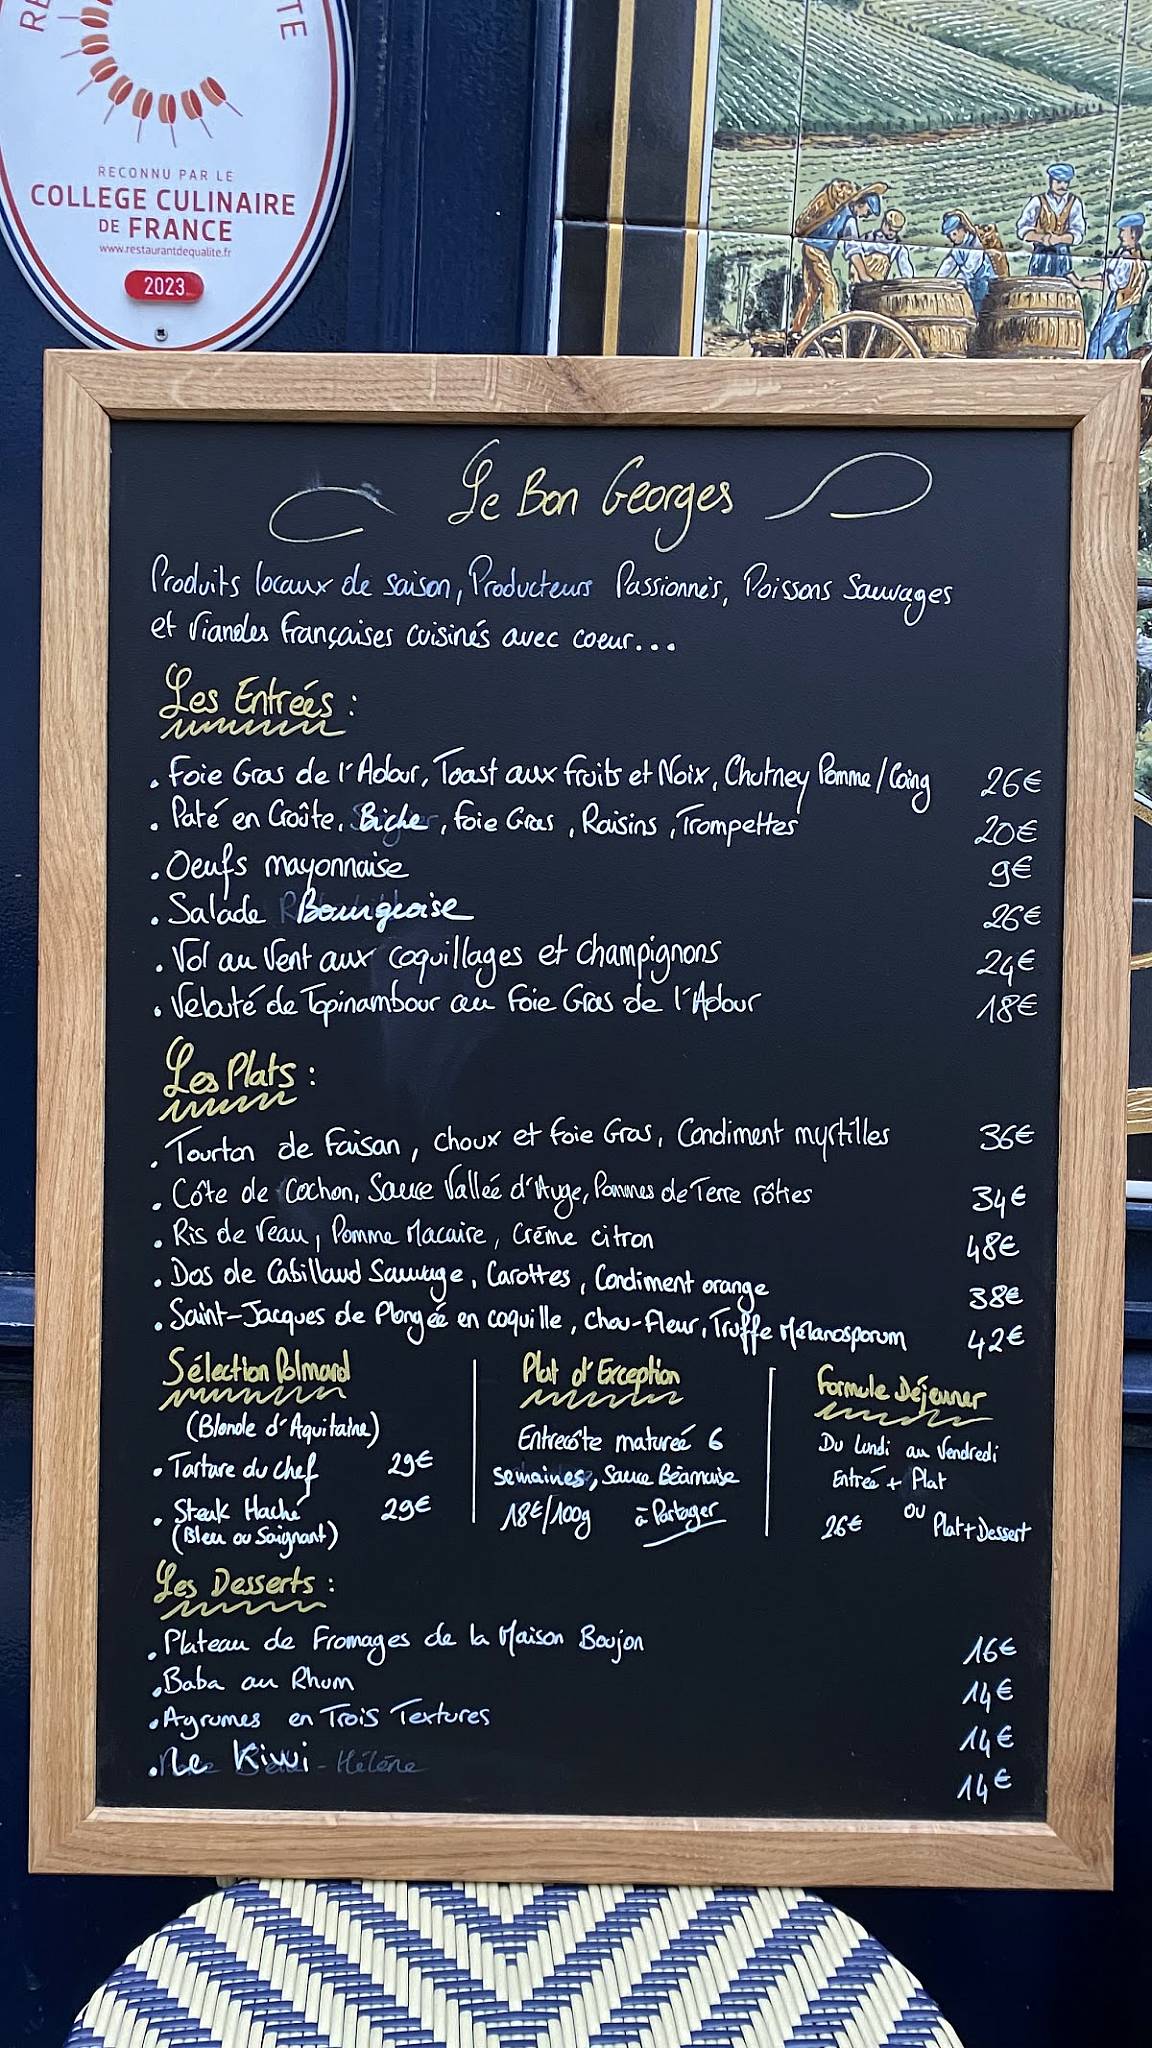 RECONNU PAR LE
COLLEGE CULINAIRE
DE FRANCE
www.restaurantdequalite.fr
2023
Le Bon Georges
Produits locaux de saison, Producteurs Passionnés, Poissons Sauvages
et Viandes Françaises cuisinés avec coeur...
Les Entreés :
. Foie Gras de l'Adour, Toast aux fruits et Noix, Chutney Pomme/Coing 26€
. Paté en Croûte, Biche, Foie Gras, Raisins, Trompettes 20€
. Oeufs mayonnaise 9€
. Salade Bourgeoise 26€
. Vol au Vent aux coquillages et champignons 24€
. Velouté de Topinambour au Foie Gras de l'Adour 18€
Les Plats :
. Tourton de Faisan, choux et foie Gras, Condiment myrtilles 36€
. Côte de Cochon, Sauce Valleé d'Auge, Pommes de Terre rôties 34€
. Ris de Veau, Pomme Macaire, Crème citron 48€
. Dos de Cabillaud Sauvage, Carottes, Condiment orange 38€
. Saint-Jacques de Plongeé en coquille, chou-Fleur, Truffe Mélanosporum 42€
Sélection Polmard
(Blonde d'Aquitaine)
. Tartare du chef 29€
. Steak Haché 29€
(Bleu ou Saignant)
Plat d'Exception
Entrecôte matureé 6
semaines, Sauce Béarnaise
18€/100g à Partager
Formule Déjeuner
Du lundi au Vendredi
Entreé + Plat
ou
26€ Plat+Dessert
Les Desserts :
. Plateau de Fromages de la Maison Boujon 16€
. Baba au Rhum 14€
. Agrumes en Trois Textures 14€
. Le Kiwi 14€